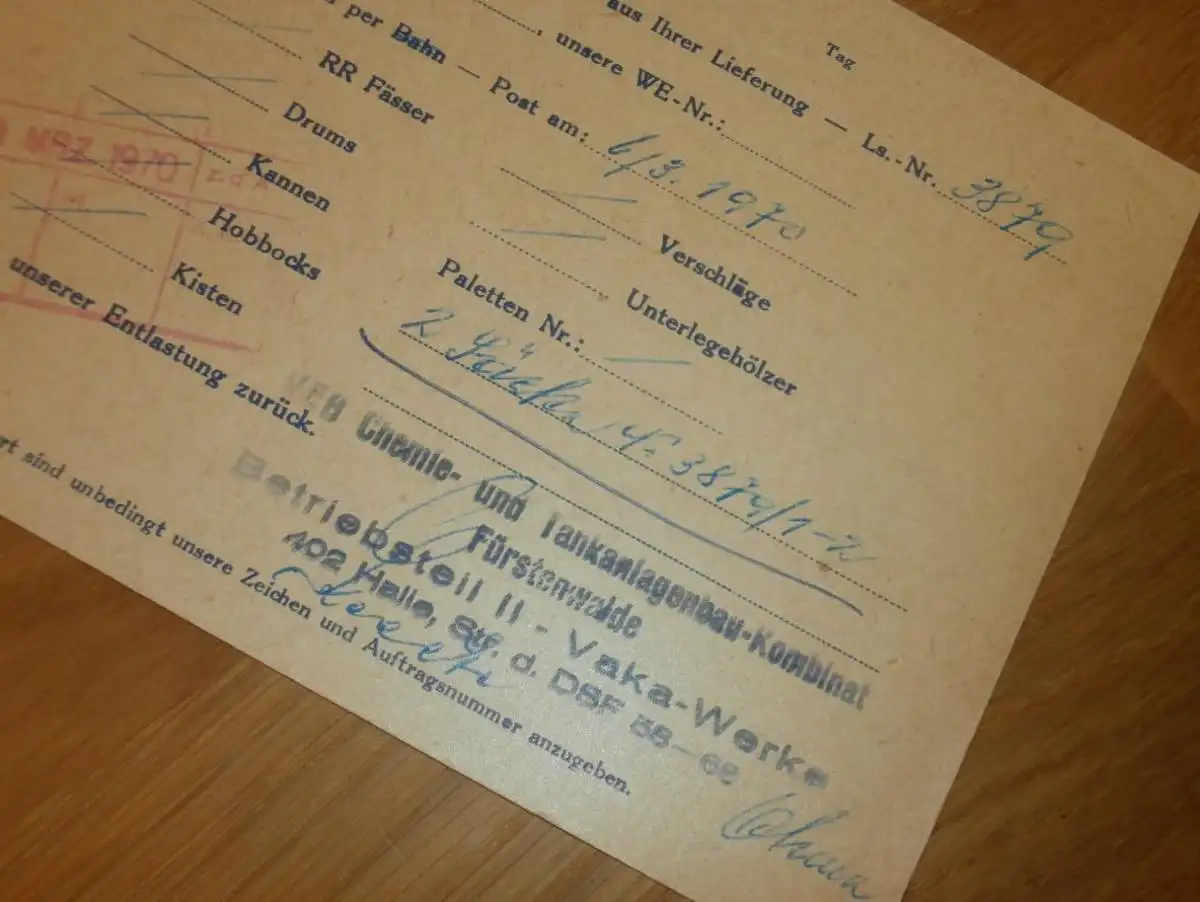 Tag
aus Ihrer Lieferung — Ls.-Nr. 3879
, unsere WE-Nr.:
per Bahn — Post am: 6/3. 1970
RR Fässer
Drums
Kannen
Hobbocks
Kisten
Verschläge
Unterlegehölzer
Paletten Nr.:
2 3879/1-2
MRZ 1970
unserer Entlastung zurück.
VEB Chemie- und Tankanlagenbau-Kombinat
Fürstenwalde
Betriebsteil II - Vaka-Werke
402 Halle, Str. d. DSF 58-68
sind unbedingt unsere Zeichen und Auftragsnummer anzugeben.